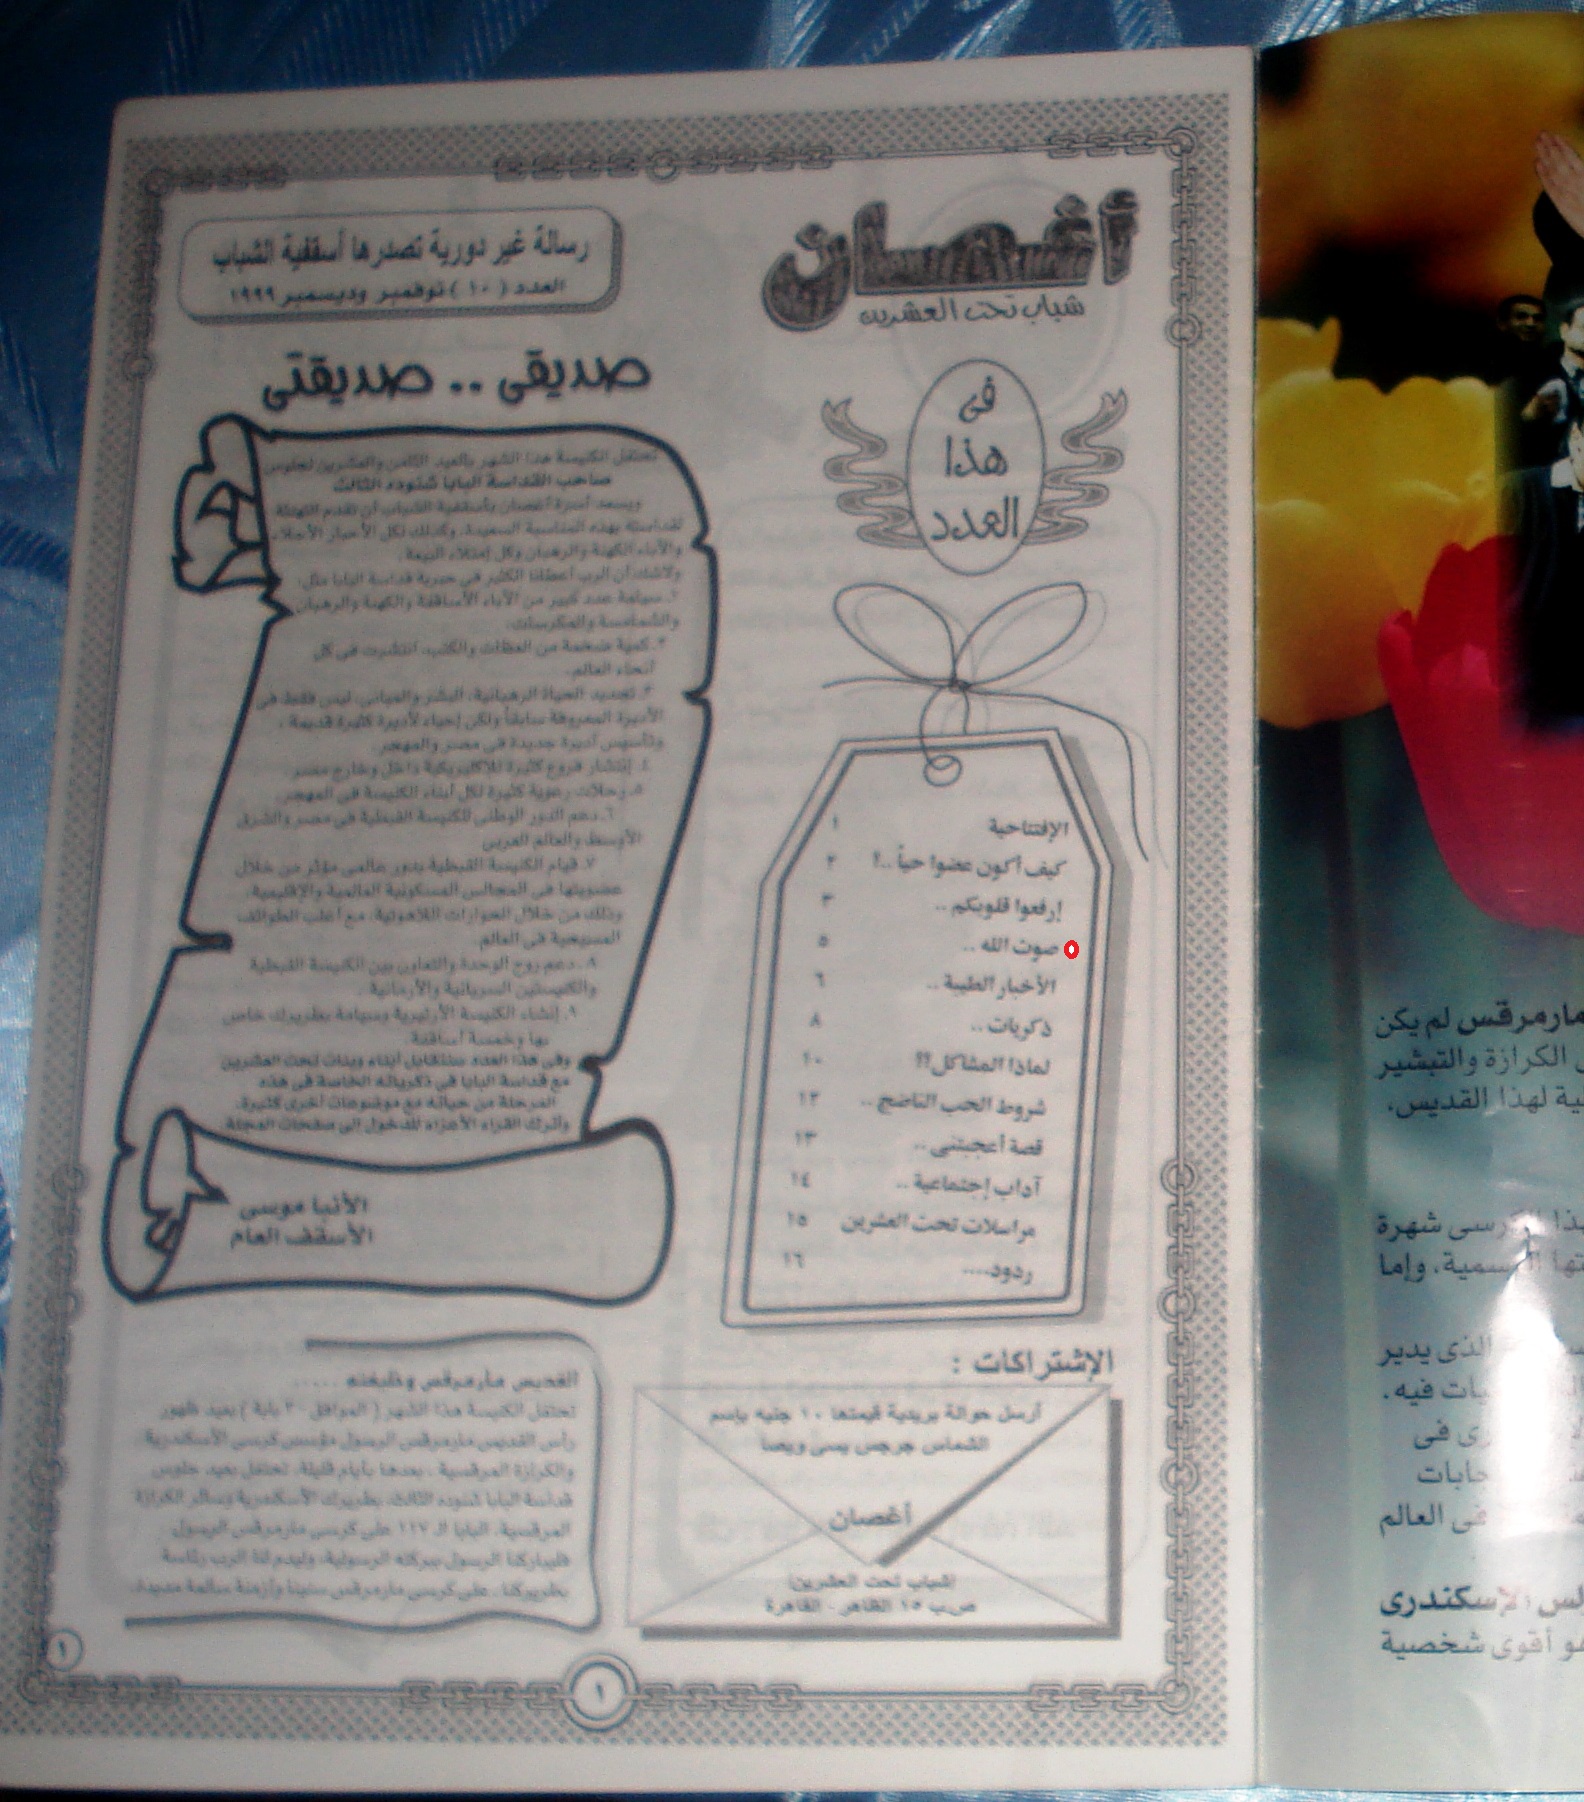 أغصان
شباب تحت العشرين
رسالة غير دورية تصدرها أسقفية الشباب
العدد ( ١٠ ) نوفمبر وديسمبر ١٩٩٩
فى
هذا
العدد
الإفتتاحية ١
كيف أكون عضوا حياً ..؟ ٢
إرفعوا قلوبكم .. ٣
صوت الله .. ٥
الأخبار الطيبة .. ٦
ذكريات .. ٨
لماذا المشاكل؟! ١٠
شروط الحب الناضج .. ١٢
قصة أعجبتنى .. ١٣
آداب إجتماعية .. ١٤
مراسلات تحت العشرين ١٥
ردود.... ١٦
الإشتراكات :
أرسل حوالة بريدية قيمتها ١٠ جنيه بإسم
الشماس جرجس يسى ويصا
أغصان
(شباب تحت العشرين)
ص.ب ١٥ الظاهر - القاهرة
صديقى .. صديقتى
تحتفل الكنيسة هذا الشهر بالعيد الثامن والعشرين لجلوس
صاحب القداسة البابا شنوده الثالث
ويسعد أسرة أغصان بأسقفية الشباب أن تقدم التهنئة
لقداسته بهذه المناسبة السعيدة، وكذلك لكل الأحبار الأجلاء
والآباء الكهنة والرهبان وكل
ولاشك أن الرب أعطانا الكثير فى حبرية قداسة البابا مثل:
١. سيامة عدد كبير من الآباء الأساقفة والكهنة والرهبان
والشمامسة والمكرسات.
٢. كمية ضخمة من العظات والكتب، انتشرت فى كل
أنحاء العالم.
٣. تجديد الحياة الرهبانية، البشر والمبانى، ليس فقط فى
الأديرة المعروفة سابقاً ولكن إحياء لأديرة كثيرة قديمة ،
وتأسيس أديرة جديدة فى مصر والمهجر.
٤. إنتشار فروع كثيرة للاكليريكية داخل وخارج مصر.
٥. رحلات رعوية كثيرة لكل أبناء الكنيسة فى المهجر.
٦. دعم الدور الوطنى للكنيسة القبطية فى مصر والشرق
الأوسط والعالم العربى
٧. قيام الكنيسة القبطية بدور عالمى مؤثر من خلال
عضويتها فى المجالس المسكونية العالمية والإقليمية.
وذلك من خلال الحوارات اللاهوتية، مع أغلب الطوائف
المسيحية فى العالم.
٨. دعم روح الوحدة والتعاون بين الكنيسة القبطية
والكنيستين السريانية والأرمانية.
٩. إنشاء الكنيسة الأرتيرية وسيامة بطريرك خاص
بها وخمسة أساقفة.
وفى هذا العدد سنتقابل أبناء وبنات تحت العشرين
مع قداسة البابا فى ذكرياته الخاصة فى هذه
المرحلة من حياته مع موضوعات أخرى كثيرة.
وأترك القراء الأعزاء للدخول إلى صفحات المجلة.
الأنبا موسى
الأسقف العام
القديس مارمرقس وخليفته .....
تحتفل الكنيسة هذا الشهر ( الموافق ٣٠ بابة ) بعيد ظهور
رأس القديس مارمرقس الرسول مؤسس كرسى الأسكندرية
والكرازة المرقسية ، بعدها بأيام قليلة، تحتفل بعيد جلوس
قداسة البابا شنوده الثالث، بطريرك الأسكندرية وسائر الكرازة
المرقسية، البابا الـ ١١٧ على كرسى مارمرقس الرسول
فليباركنا الرسول ببركته الرسولية، وليدم لنا الرب رئاسة
بطريركنا، على كرسى مارمرقس سنينا وأزمنة سالمة مديدة.
١
١
مارمرقس لم يكن
الكرازة والتبشير
لهذا القديس.
شهرة
وإما
الذى يدير
فيه.
فى
فى العالم
الإسكندرى
هو أقوى شخصية